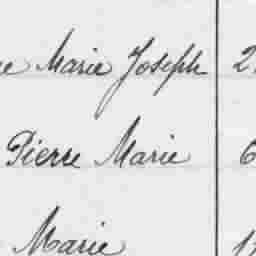 Marie Joseph 2
Pierre Marie 6
Marie